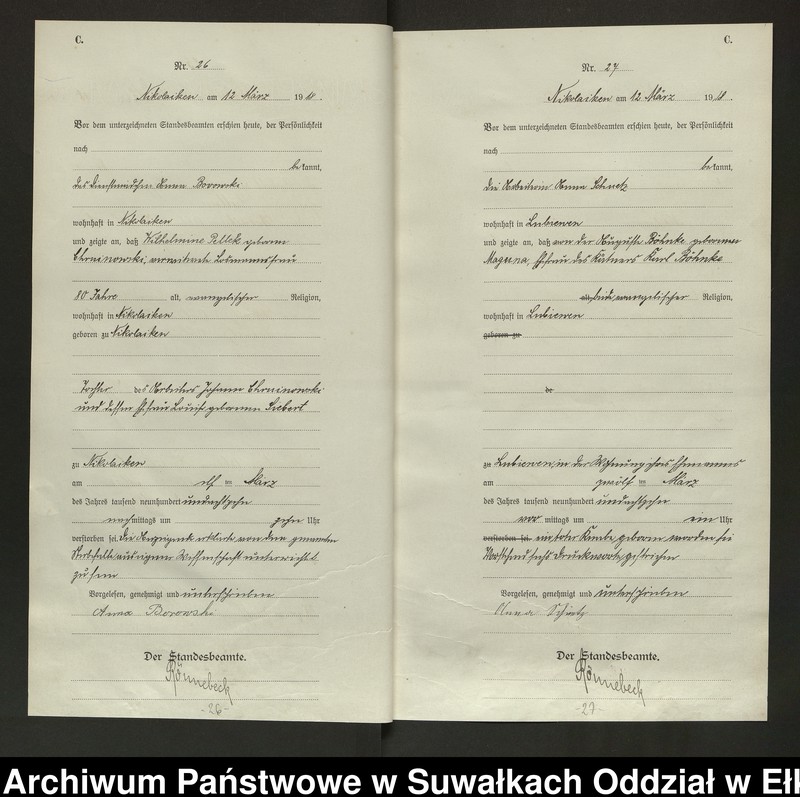 C.
Nr. 26
Nikolaiken am 12 März 1918.
Vor dem unterzeichneten Standesbeamten erschien heute, der Persönlichkeit
nach
bekannt,
das Dienstmädchen Anna Borowski
wohnhaft in Nikolaiken
und zeigte an, daß Wilhelmine geborene
verwitwete Losmannsfrau
80 Jahre alt, evangelischer Religion,
wohnhaft in Nikolaiken
geboren zu Nikolaiken
Tochter des Arbeiters Johann
und dessen Ehefrau Louise geborenen Siebert
zu Nikolaiken
am elf ten März
des Jahres tausend neunhundert undachtzehn
nachmittags um zehn Uhr
verstorben sei. Die Anzeigende erklärte von dem genannten
Sterbefalle aus eigener Wissenschaft unterrichtet
zu sein
Vorgelesen, genehmigt und unterschrieben
Anna Borowski
Der Standesbeamte.
Rönnebeck
-26-
C.
Nr. 27
Nikolaiken am 12 März 1918.
Vor dem unterzeichneten Standesbeamten erschien heute, der Persönlichkeit
nach
bekannt,
die Arbeiterin Anna
wohnhaft in Lubiewen
und zeigte an, daß von der Auguste Böhnke geborenen
Ehefrau des Kätners Karl Böhnke
beide evangelischer Religion,
wohnhaft in Lubiewen
geboren zu
de
zu Lubiewen, in der Wohnung ihres Ehemannes
am zwölf ten März
des Jahres tausend neunhundert undachtzehn
vor mittags um ein Uhr
verstorben sei. ein toter Knabe geboren worden sei
Vorstehend sechs Druckworte gestrichen
Vorgelesen, genehmigt und unterschrieben
Anna
Der Standesbeamte.
Rönnebeck
-27-
Archiwum Państwowe w Suwałkach Oddział w Ełk